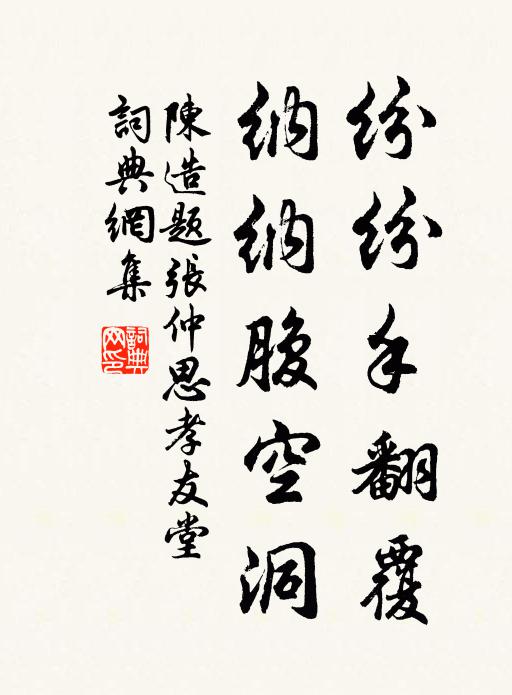 紛紛手翻覆
納納腹空洞
陳造題張仲思孝友堂
詞典網集
詞典網印